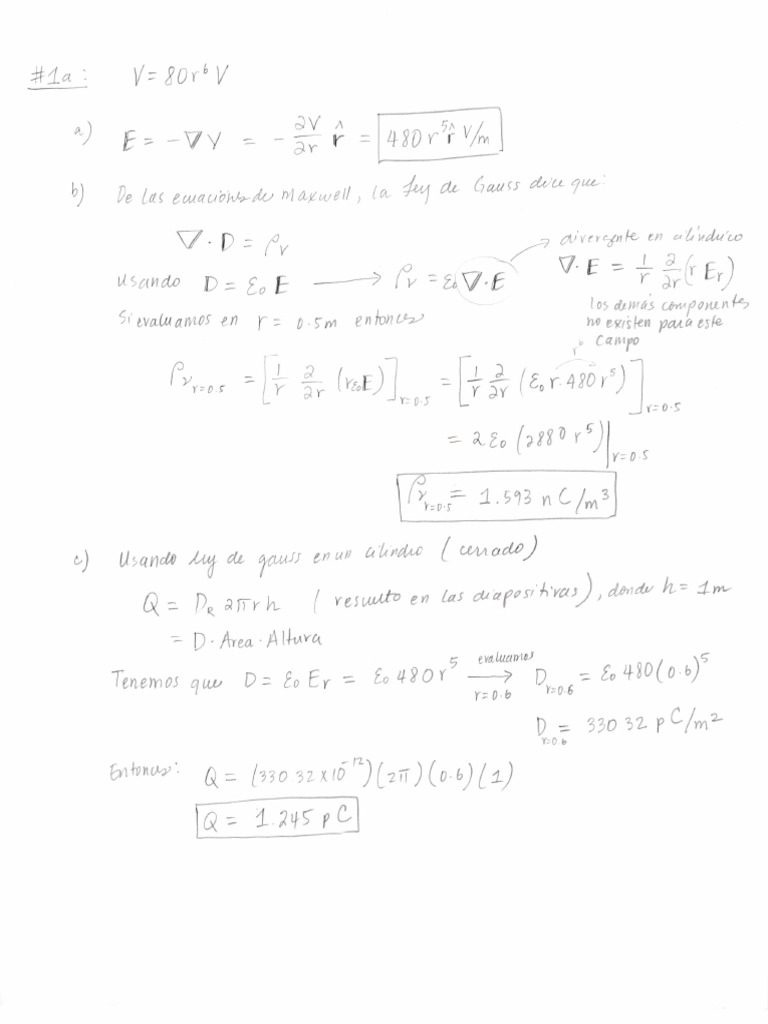 #1a: V = 80r⁶ V
a) E = -∇V = -∂V/∂r r̂ = 480 r⁵ r̂ V/m
b) De las ecuaciones de Maxwell, la ley de Gauss dice que:
∇·D = ρv
divergente en cilíndrico
usando D = ε₀ E → ρv = ε₀ ∇·E
∇·E = 1/r ∂/∂r (r Er)
Si evaluamos en r = 0.5m entonces
los demás componentes
no existen para este
campo
r⁶
ρv r=0.5 = [1/r ∂/∂r (rε₀E)] r=0.5 = [1/r ∂/∂r (ε₀ r·480 r⁵)] r=0.5
= 2ε₀ (2880 r⁵)| r=0.5
ρv r=0.5 = 1.593 nC/m³
c) Usando ley de gauss en un cilindro (cerrado)
Q = DR 2πrh (resuelto en las diapositivas), donde h = 1m
= D·Area·Altura
Tenemos que D = ε₀ Er = ε₀ 480 r⁵ evaluamos → r=0.6 D r=0.6 = ε₀ 480(0.6)⁵
D r=0.6 = 330 32 pC/m²
Entonces: Q = (330 32 x10⁻¹²)(2π)(0.6)(1)
Q = 1.245 pC